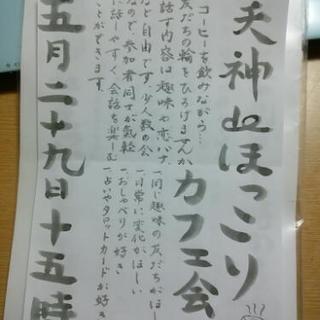 天神deほっこりカフェ会
コーヒーを飲みながら…
友だちの輪をひろげませんか
話す内容は趣味や恋バナ
など自由です。少人数の会
なので、参加者同士が気軽
に話しやすく、会話を楽しむ
ことができます。
・同じ趣味の友だちがほし
・日常に変化がほしい
・おしゃべりが好き
・占いやタロットカードが好き
五月二十九日十五時